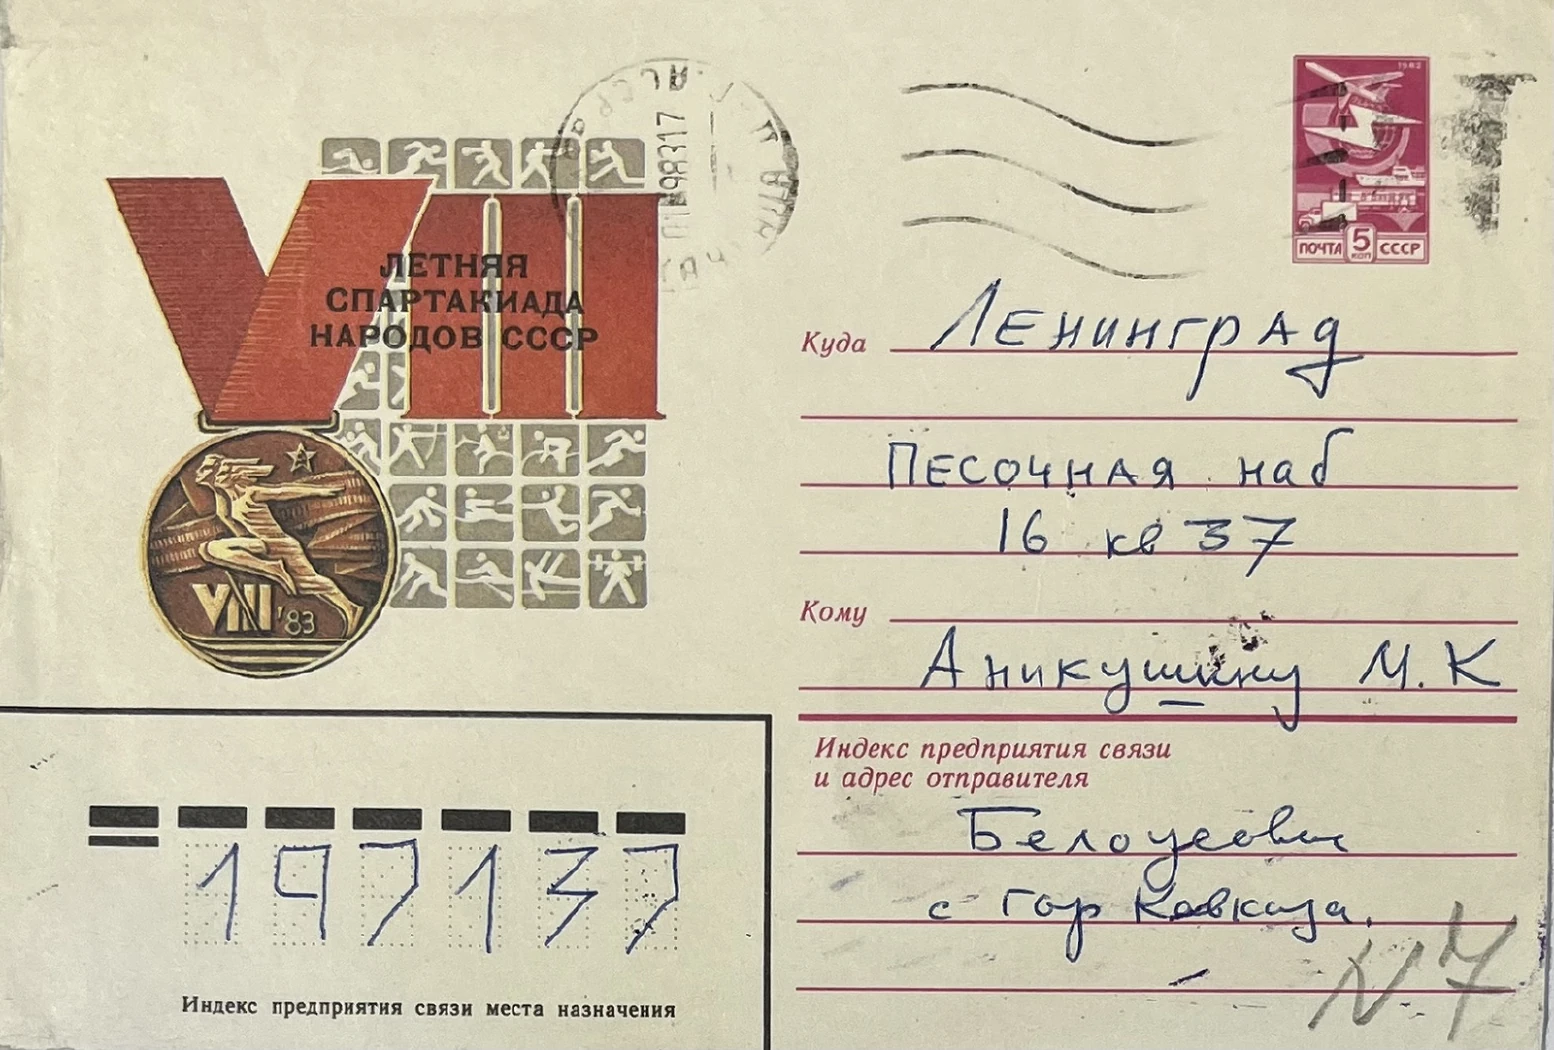 1982
ПОЧТА 5 КОП СССР
VIII
ЛЕТНЯЯ
СПАРТАКИАДА
НАРОДОВ СССР
VIII '83
Куда Ленинград
Песочная наб
16 кв 37
Кому
Аникушину М. К
Индекс предприятия связи
и адрес отправителя
Белоусович
с гор Кавказа.
N 7
197137
Индекс предприятия связи места назначения